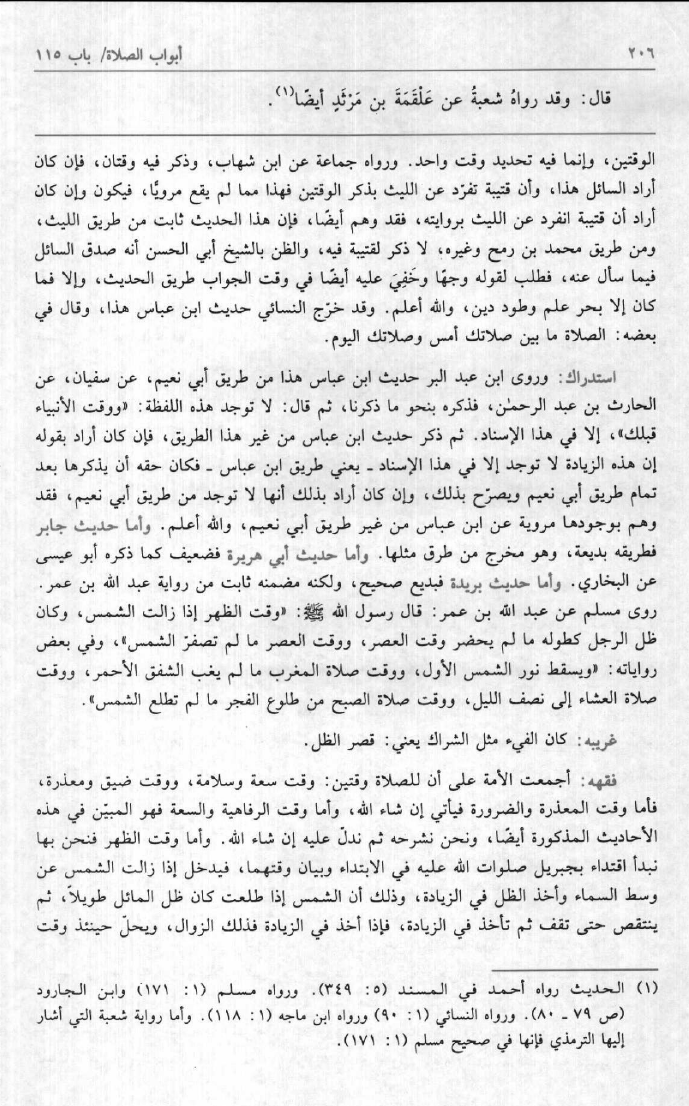 ٢٠٦
أبواب الصلاة/ باب ١١٥
قال: وقد رواهُ شعبةُ عن عَلْقَمَةَ بن مَرْثَدٍ أيضًا(١).
الوقتين، وإنما فيه تحديد وقت واحد. ورواه جماعة عن ابن شهاب، وذكر فيه وقتان، فإن كان
أراد السائل هذا، وأن قتيبة تفرّد عن الليث بذكر الوقتين فهذا مما لم يقع مرويًا، فيكون وإن كان
أراد أن قتيبة انفرد عن الليث بروايته، فقد وهم أيضًا، فإن هذا الحديث ثابت من طريق الليث،
ومن طريق محمد بن رمح وغيره، لا ذكر لقتيبة فيه، والظن بالشيخ أبي الحسن أنه صدق السائل
فيما سأل عنه، فطلب لقوله وجهًا وخَفِيَ عليه أيضًا في وقت الجواب طريق الحديث، وإلا فما
كان إلا بحر علم وطود دين، والله أعلم. وقد خرّج النسائي حديث ابن عباس هذا، وقال في
بعضه: الصلاة ما بين صلاتك أمس وصلاتك اليوم.
استدراك: وروى ابن عبد البر حديث ابن عباس هذا من طريق أبي نعيم، عن سفيان، عن
الحارث بن عبد الرحمٰن، فذكره بنحو ما ذكرنا، ثم قال: لا توجد هذه اللفظة: «ووقت الأنبياء
قبلك»، إلا في هذا الإسناد. ثم ذكر حديث ابن عباس من غير هذا الطريق، فإن كان أراد بقوله
إن هذه الزيادة لا توجد إلا في هذا الإسناد ـ يعني طريق ابن عباس ـ فكان حقه أن يذكرها بعد
تمام طريق أبي نعيم ويصرّح بذلك، وإن كان أراد بذلك أنها لا توجد من طريق أبي نعيم، فقد
وهم بوجودها مروية عن ابن عباس من غير طريق أبي نعيم، والله أعلم. وأما حديث جابر
فطريقه بديعة، وهو مخرج من طرق مثلها. وأما حديث أبي هريرة فضعيف كما ذكره أبو عيسى
عن البخاري. وأما حديث بريدة فبديع صحيح، ولكنه مضمنه ثابت من رواية عبد الله بن عمر.
روى مسلم عن عبد الله بن عمر: قال رسول الله ﷺ: «وقت الظهر إذا زالت الشمس، وكان
ظل الرجل كطوله ما لم يحضر وقت العصر، ووقت العصر ما لم تصفرّ الشمس»، وفي بعض
رواياته: «ويسقط نور الشمس الأول، ووقت صلاة المغرب ما لم يغب الشفق الأحمر، ووقت
صلاة العشاء إلى نصف الليل، ووقت صلاة الصبح من طلوع الفجر ما لم تطلع الشمس».
غريبه: كان الفيء مثل الشراك يعني: قصر الظل.
فقهه: أجمعت الأمة على أن للصلاة وقتين: وقت سعة وسلامة، ووقت ضيق ومعذرة،
فأما وقت المعذرة والضرورة فيأتي إن شاء الله، وأما وقت الرفاهية والسعة فهو المبيّن في هذه
الأحاديث المذكورة أيضًا، ونحن نشرحه ثم ندلّ عليه إن شاء الله. وأما وقت الظهر فنحن بها
نبدأ اقتداء بجبريل صلوات الله عليه في الابتداء وبيان وقتهما، فيدخل إذا زالت الشمس عن
وسط السماء وأخذ الظل في الزيادة، وذلك أن الشمس إذا طلعت كان ظل المائل طويلاً، ثم
ينتقص حتى تقف ثم تأخذ في الزيادة، فإذا أخذ في الزيادة فذلك الزوال، ويحلّ حينئذ وقت
(١) الحديث رواه أحمد في المسند (٥: ٣٤٩). ورواه مسلم (١: ١٧١) وابن الجارود
(ص ٧٩ ـ ٨٠). ورواه النسائي (١: ٩٠) ورواه ابن ماجه (١: ١١٨). وأما رواية شعبة التي أشار
إليها الترمذي فإنها في صحيح مسلم (١: ١٧١).